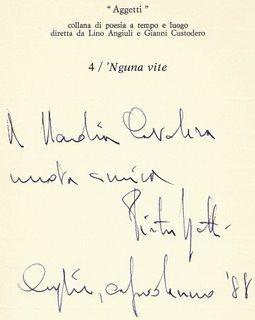 " Aggetti "
collana di poesia a tempo e luogo
diretta da Lino Angiuli e Gianni Custodero
4 / 'Nguna vite
A Cavalera
nuova amica
Pietro Gatti
Ceglie, capodanno '88